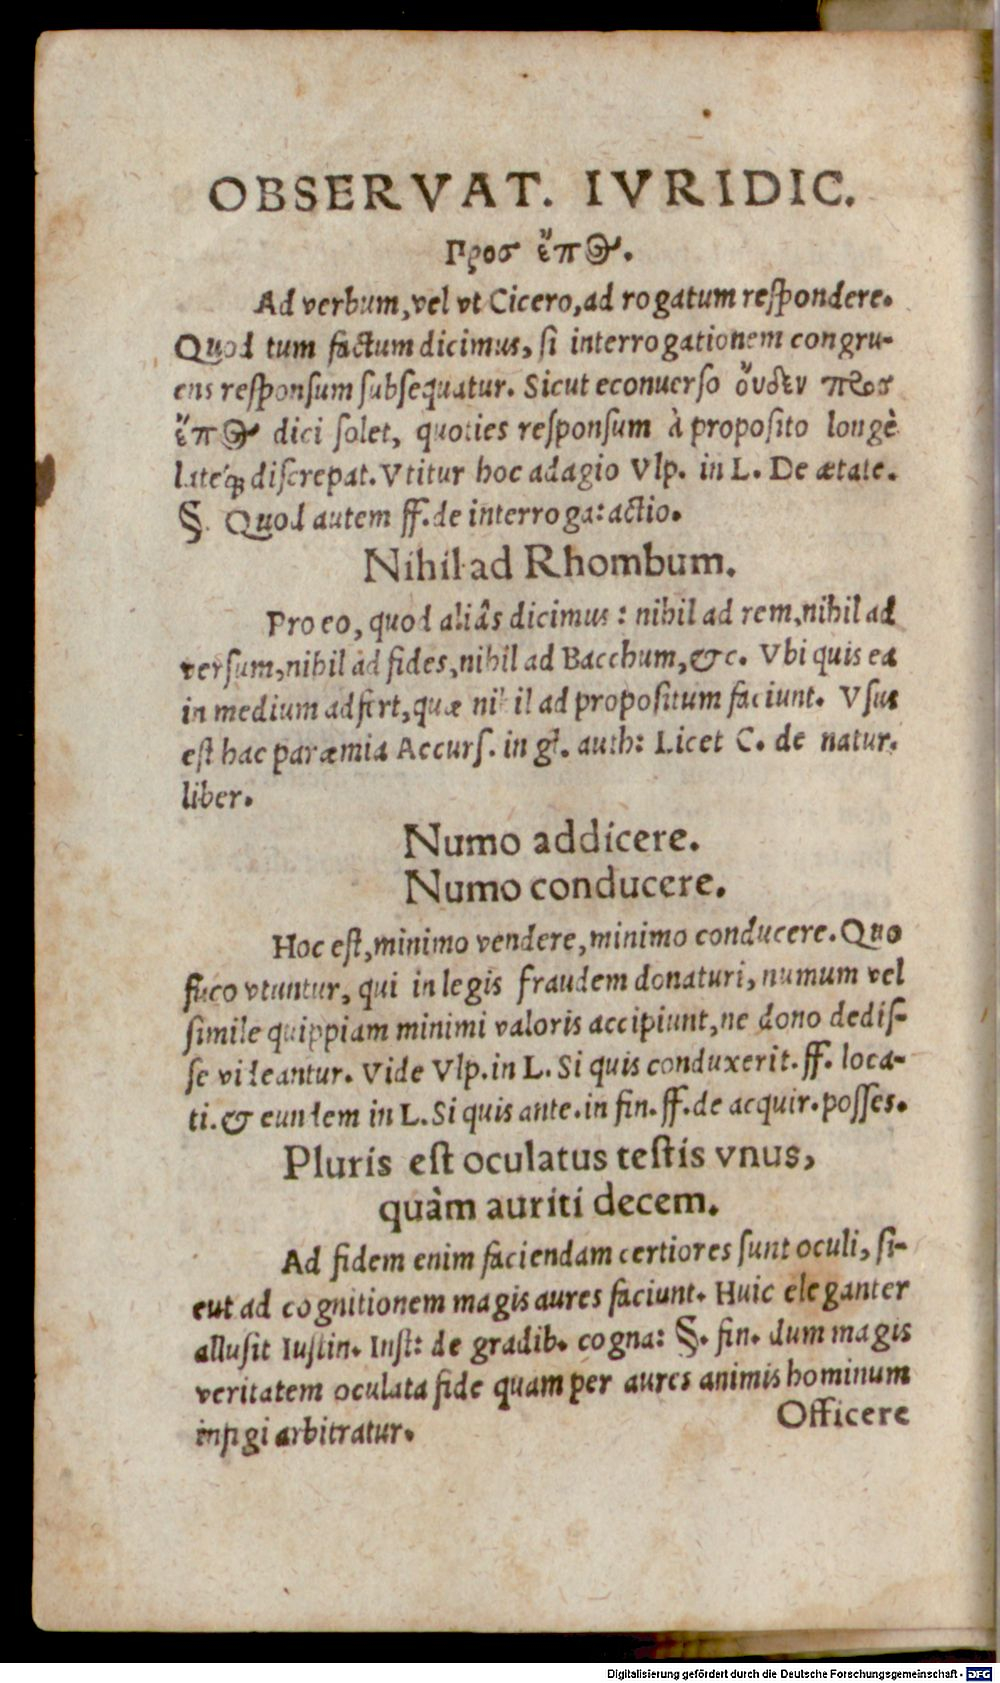 OBSERVAT. IVRIDIC.
Προσ ἔπος.
Ad verbum, vel vt Cicero, ad rogatum respondere.
Quod tum factum dicimus, si interrogationem congru-
ens responsum subsequatur. Sicut econuerso ὄυδεν προσ
ἔπος dici solet, quoties responsum à proposito longè
lateq́ꝫ discrepat. Vtitur hoc adagio Vlp. in L. De ætate.
§. Quod autem ff. de interroga: actio.
Nihil ad Rhombum.
Pro eo, quod aliâs dicimus: nihil ad rem, nihil ad
versum, nihil ad fides, nihil ad Bacchum, &c. Vbi quis ea
in medium adfert, quæ nihil ad propositum faciunt. Vsus
est hac paræmia Accurs. in gl. auth: Licet C. de natur.
liber.
Numo addicere.
Numo conducere.
Hoc est, minimo vendere, minimo conducere. Quo
fuco vtuntur, qui in legis fraudem donaturi, numum vel
simile quippiam minimi valoris accipiunt, ne dono dedis-
se videantur. Vide Vlp. in L. Si quis conduxerit. ff. loca-
ti. & eundem in L. Si quis ante. in fin. ff. de acquir. posses.
Pluris est oculatus testis vnus,
quàm auriti decem.
Ad fidem enim faciendam certiores sunt oculi, si-
cut ad cognitionem magis aures faciunt. Huic eleganter
allusit Iustin. Inst: de gradib. cogna: §. fin. dum magis
veritatem oculata fide quam per aures animis hominum
infigi arbitratur.
Officere
Digitalisierung gefördert durch die Deutsche Forschungsgemeinschaft - DFG